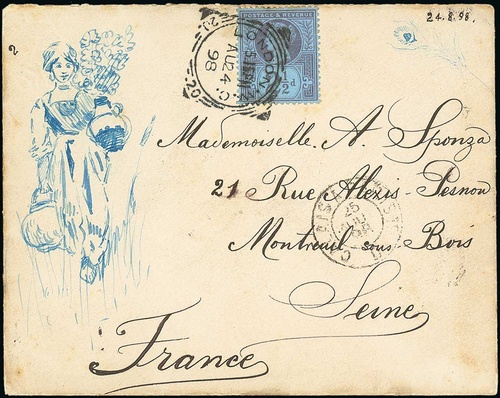 24.8.98.
2
POSTAGE & REVENUE
LONDON
AU 24
98
20
Mademoiselle. A. Sponza
21 Rue Alexis-Pesnon
Montreuil sous Bois
Seine
France
CALAIS
25
98